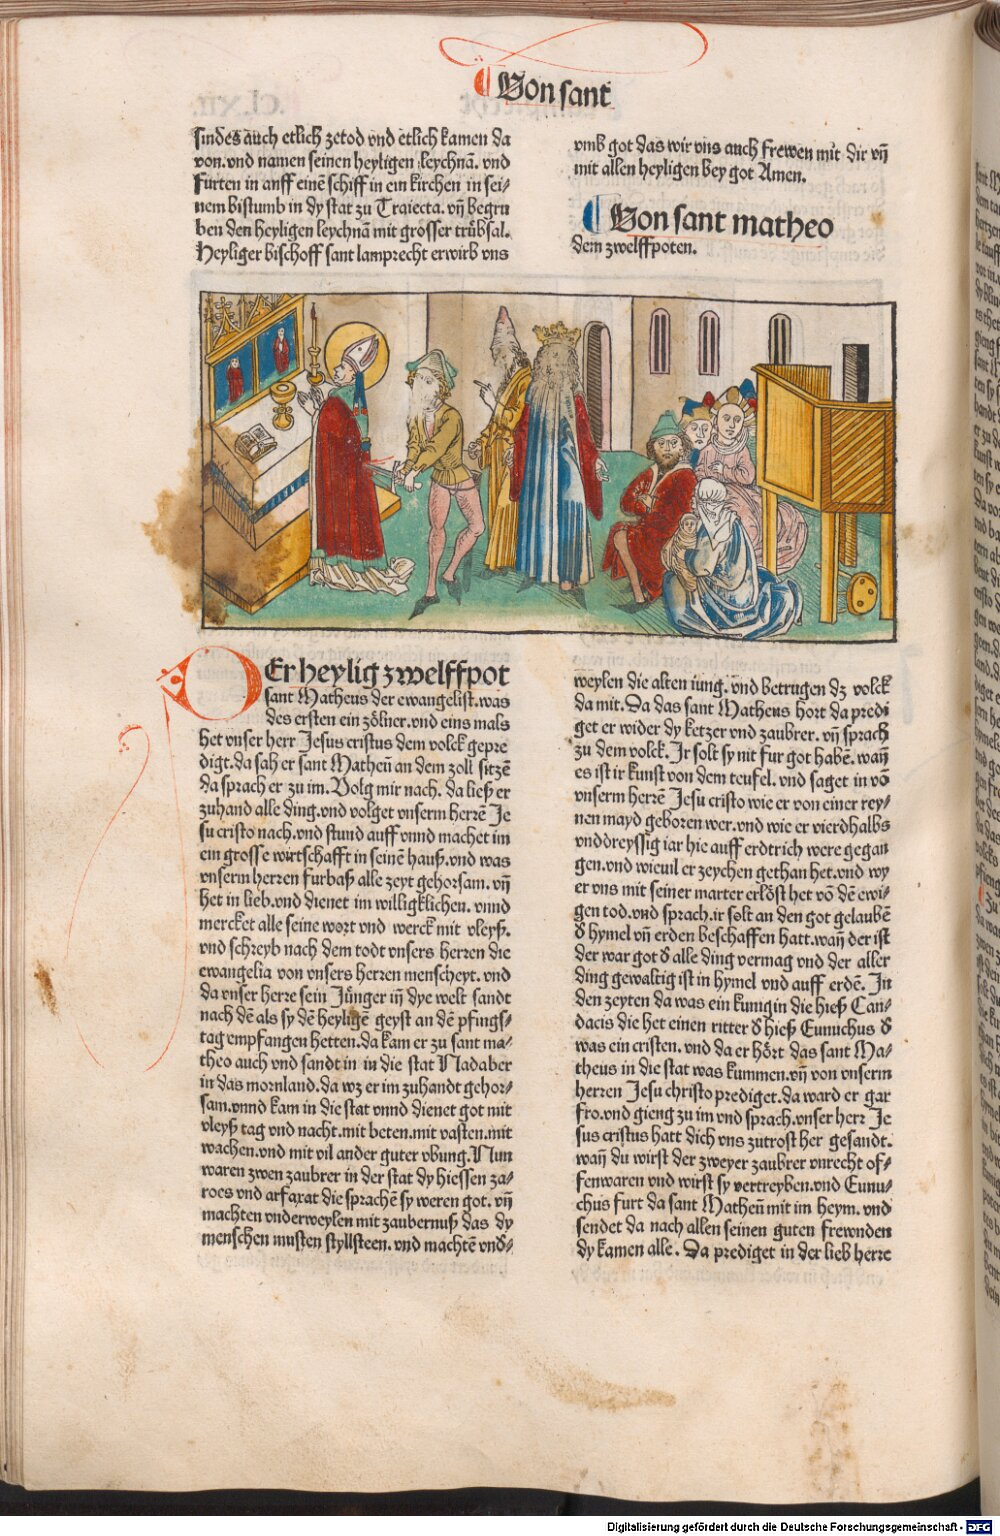 Von sant
sindes auch etlich zetod vnd etlich kamen da
von. vnd namen seinen heyligen leychnā. vnd
furten in auff einē schiff in ein kirchen in sei⸗
nem bistumb in dy stat zu Traiecta. vn̄ begru
ben den heyligen leychnā mit grosser trübsal.
Heyliger bischoff sant lamprecht erwirb vns
vmb got das wir vns auch frewen mit dir vn̄
mit allen heyligen bey got Amen.
Von sant matheo
dem zwelffpoten.
DEr heylig zwelffpot
sant Matheus der ewangelist. was
des ersten ein zölner. vnd eins mals
het vnser herr Jesus cristus dem volck gepre
digt. da sah er sant Matheū an dem zoll sitzē
da sprach er zu im. Volg mir nach. da ließ er
zuhand alle ding. vnd volget vnserm herrē Je
su cristo nach. vnd stund auff vnnd machet im
ein grosse wirtschafft in seinē hauß. vnd was
vnserm herren furbaß alle zeyt gehorsam. vn̄
het in lieb. vnd dienet im willigklichen. vnnd
mercket alle seine wort vnd werck mit vleyß.
vnd schreyb nach dem todt vnsers herren die
ewangelia von vnsers herren menscheyt. vnd
da vnser herre sein Jünger in dye welt sandt
nach dē als sy dē heyligē geyst an dē pfings⸗
tag empfangen hetten. da kam er zu sant ma⸗
theo auch vnd sandt in in die stat Nadaber
in das mornland. da wz er im zuhandt gehor⸗
sam. vnnd kam in die stat vnnd dienet got mit
vleyß tag vnd nacht. mit beten. mit vasten. mit
wachen. vnd mit vil ander guter vbung. Nun
waren zwen zaubrer in der stat dy hiessen za⸗
roes vnd arfaxat die sprachē sy weren got. vn̄
machten vnderweylen mit zaubernuß das dy
menschen musten styllsteen. vnd machtē vnd⸗
weylen die alten iung. vnd betrugen dz volck
da mit. Da das sant Matheus hort da predi
get er wider dy ketzer vnd zaubrer. vn̄ sprach
zu dem volck. Jr solt sy nit fur got habē. wan̄
es ist ir kunst von dem teufel. vnd saget in vō
vnserm herrē Jesu cristo wie er von einer rey⸗
nen mayd geboren wer. vnd wie er vierdhalbs
vnddreyssig iar hie auff erdtrich were gegan
gen. vnd wieuil er zeychen gethan het. vnd wy
er vns mit seiner marter erlöst het vō dē ewi⸗
gen tod. vnd sprach. ir solt an den got gelaubē
d hymel vn̄ erden beschaffen hatt. wan̄ der ist
der war got d alle ding vermag vnd der aller
ding gewaltig ist in hymel vnd auff erdē. Jn
den zeyten da was ein kunigin die hieß Can⸗
dacis die het einen ritter d hieß Eunuchus d
was ein cristen. vnd da er hört das sant Ma⸗
theus in die stat was kummen. vn̄ von vnserm
herren Jesu christo prediget. da ward er gar
fro. vnd gieng zu im vnd sprach. vnser herr Je
sus cristus hatt dich vns zutrost her gesandt.
wan̄ du wirst der zweyer zaubrer vnrecht of⸗
fenwaren vnd wirst sy vertreyben. vnd Eunu⸗
chus furt da sant Matheū mit im heym. vnd
sendet da nach allen seinen guten frewnden
dy kamen alle. Da prediget in der lieb herre
Digitalisierung gefördert durch die Deutsche Forschungsgemeinschaft - DFG